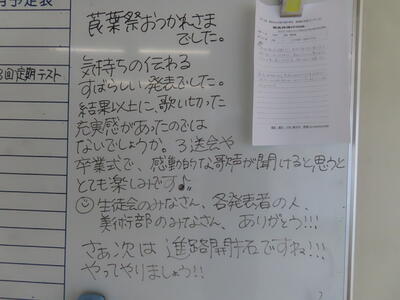 予定表
3回定期テスト
茛葉祭おつかれさま
でした。
気持ちの伝わる
すばらしい発表でした。
結果以上に、歌い切った
充実感があったのでは
ないでしょうか。3送会や
卒業式で、感動的な歌声が聞けると思うと
とても楽しみです♪
生徒会のみなさん、各発表者の人、
美術部のみなさん、ありがとう!!!
さあ次は進路開拓ですね!!!
やってやりましょう!!